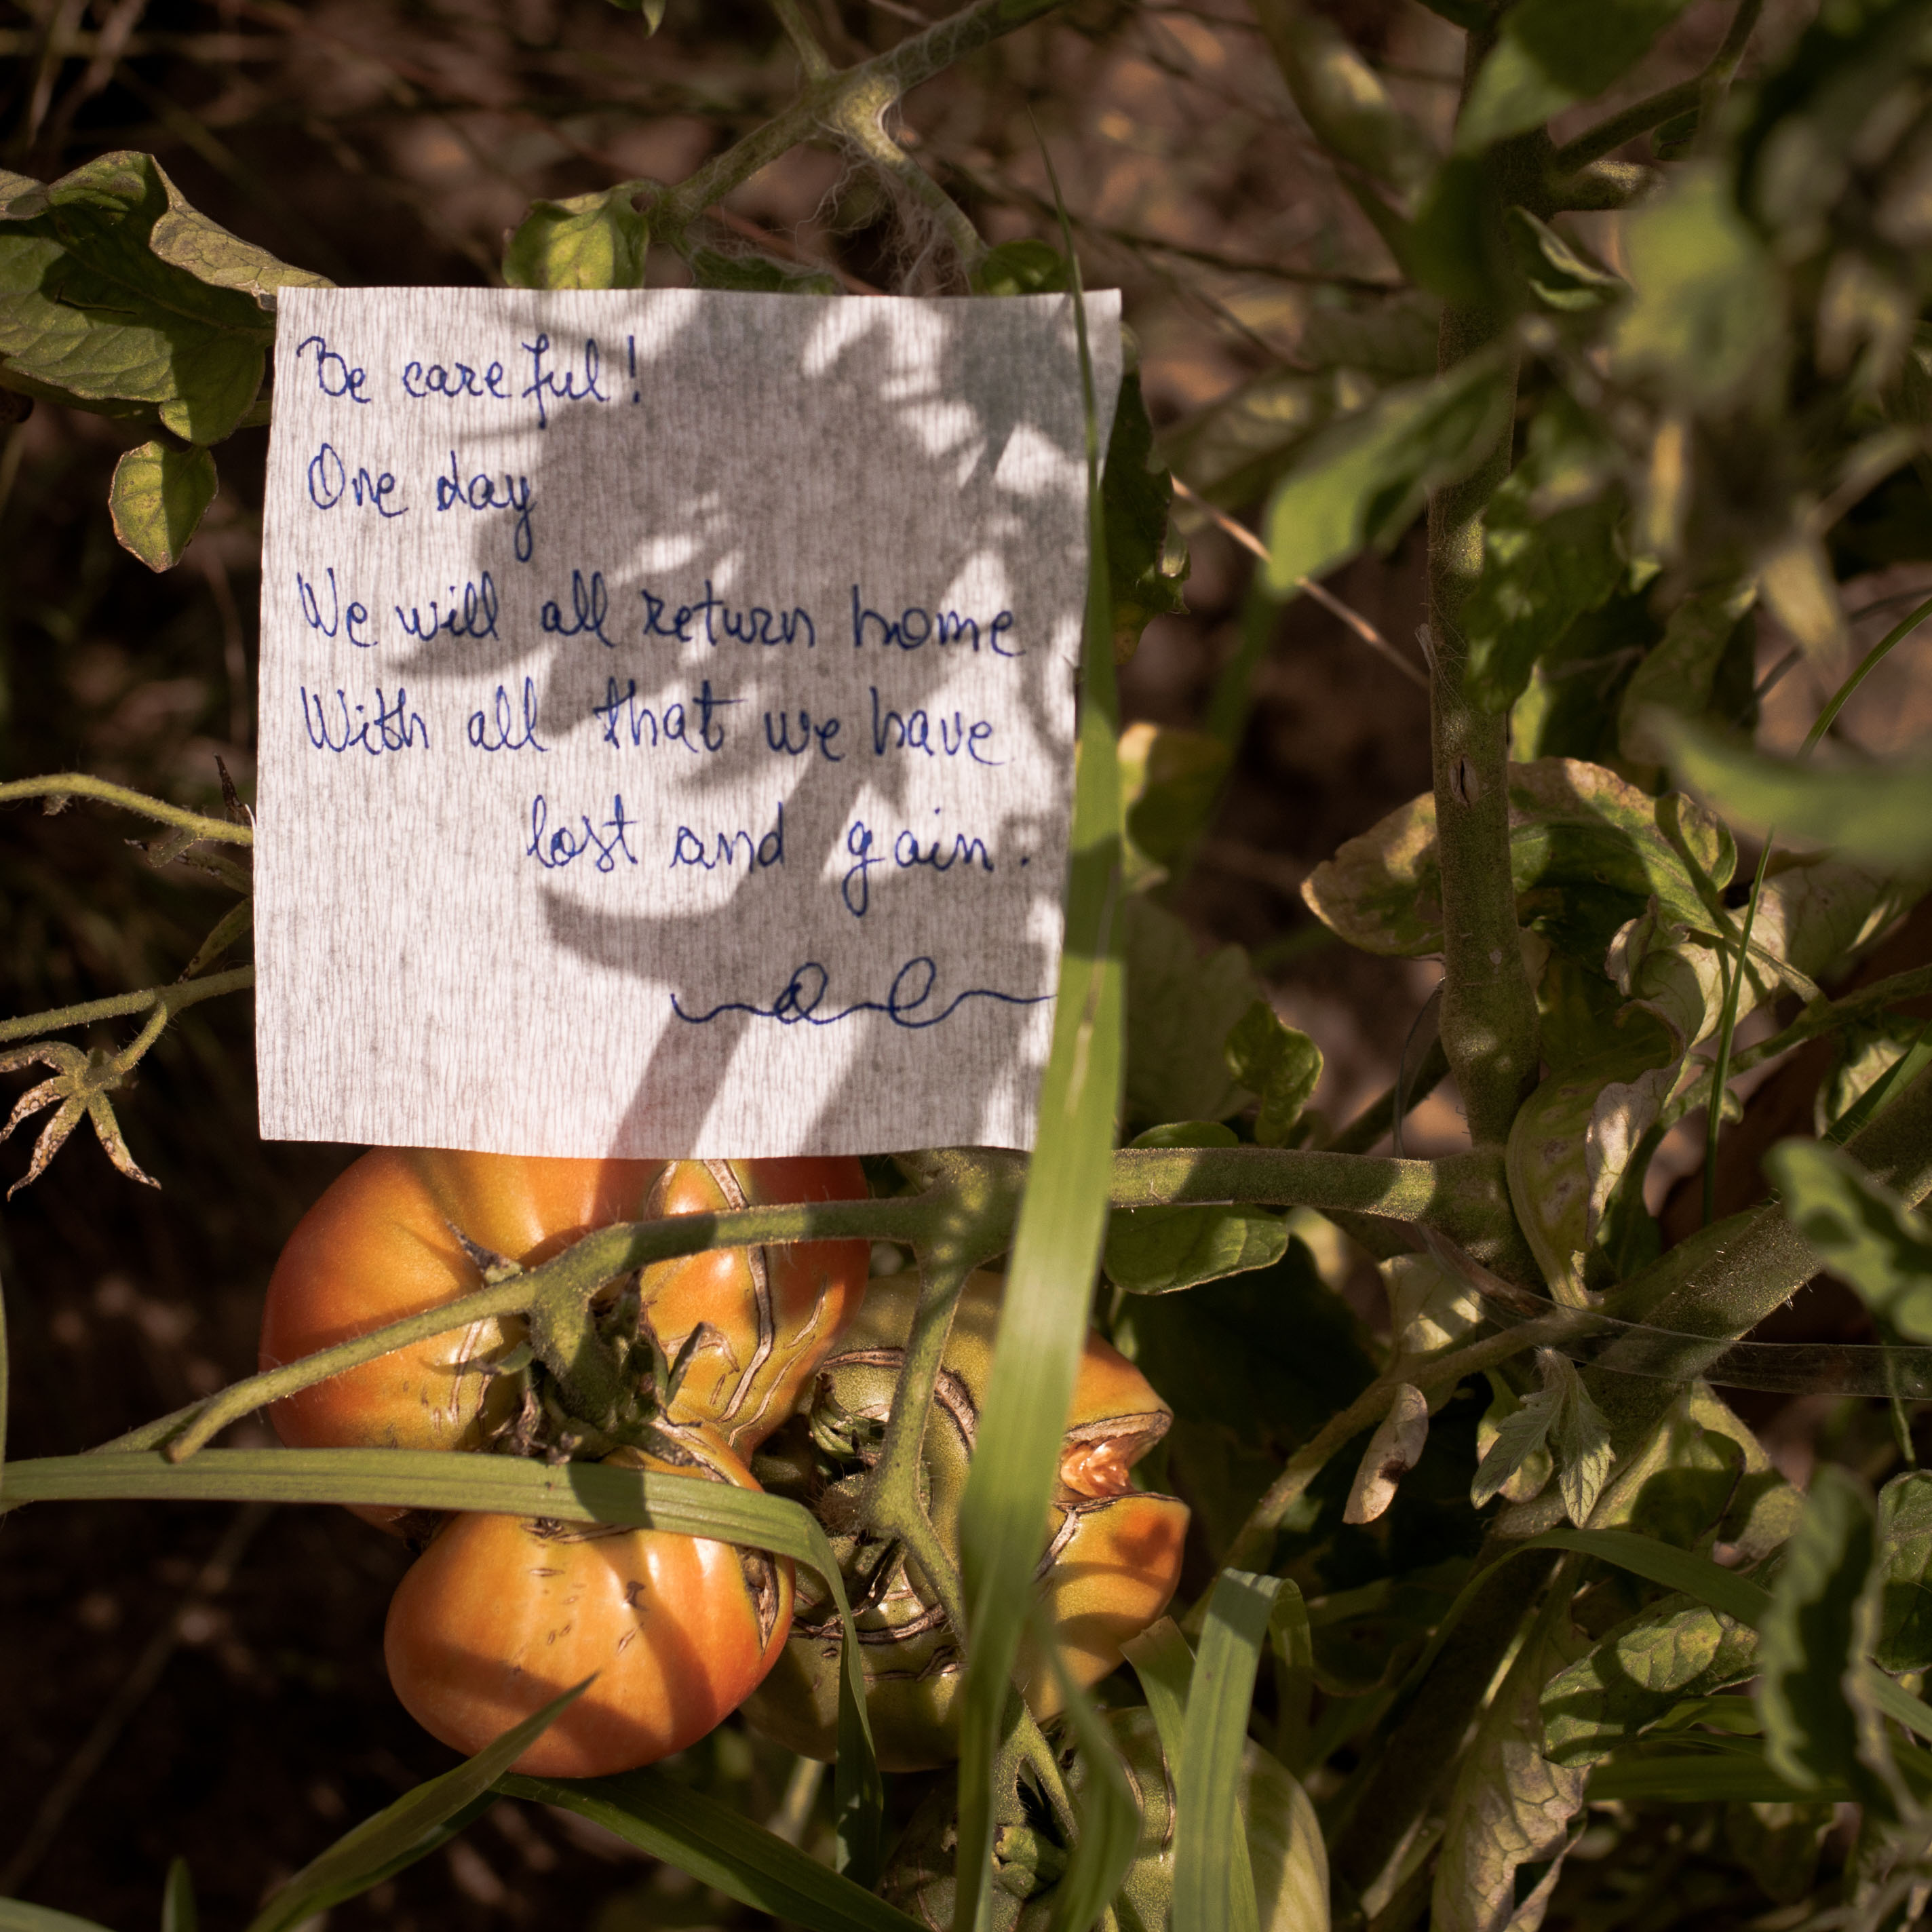 Be careful!
One day
We will all return home
With all that we have
lost and gain.